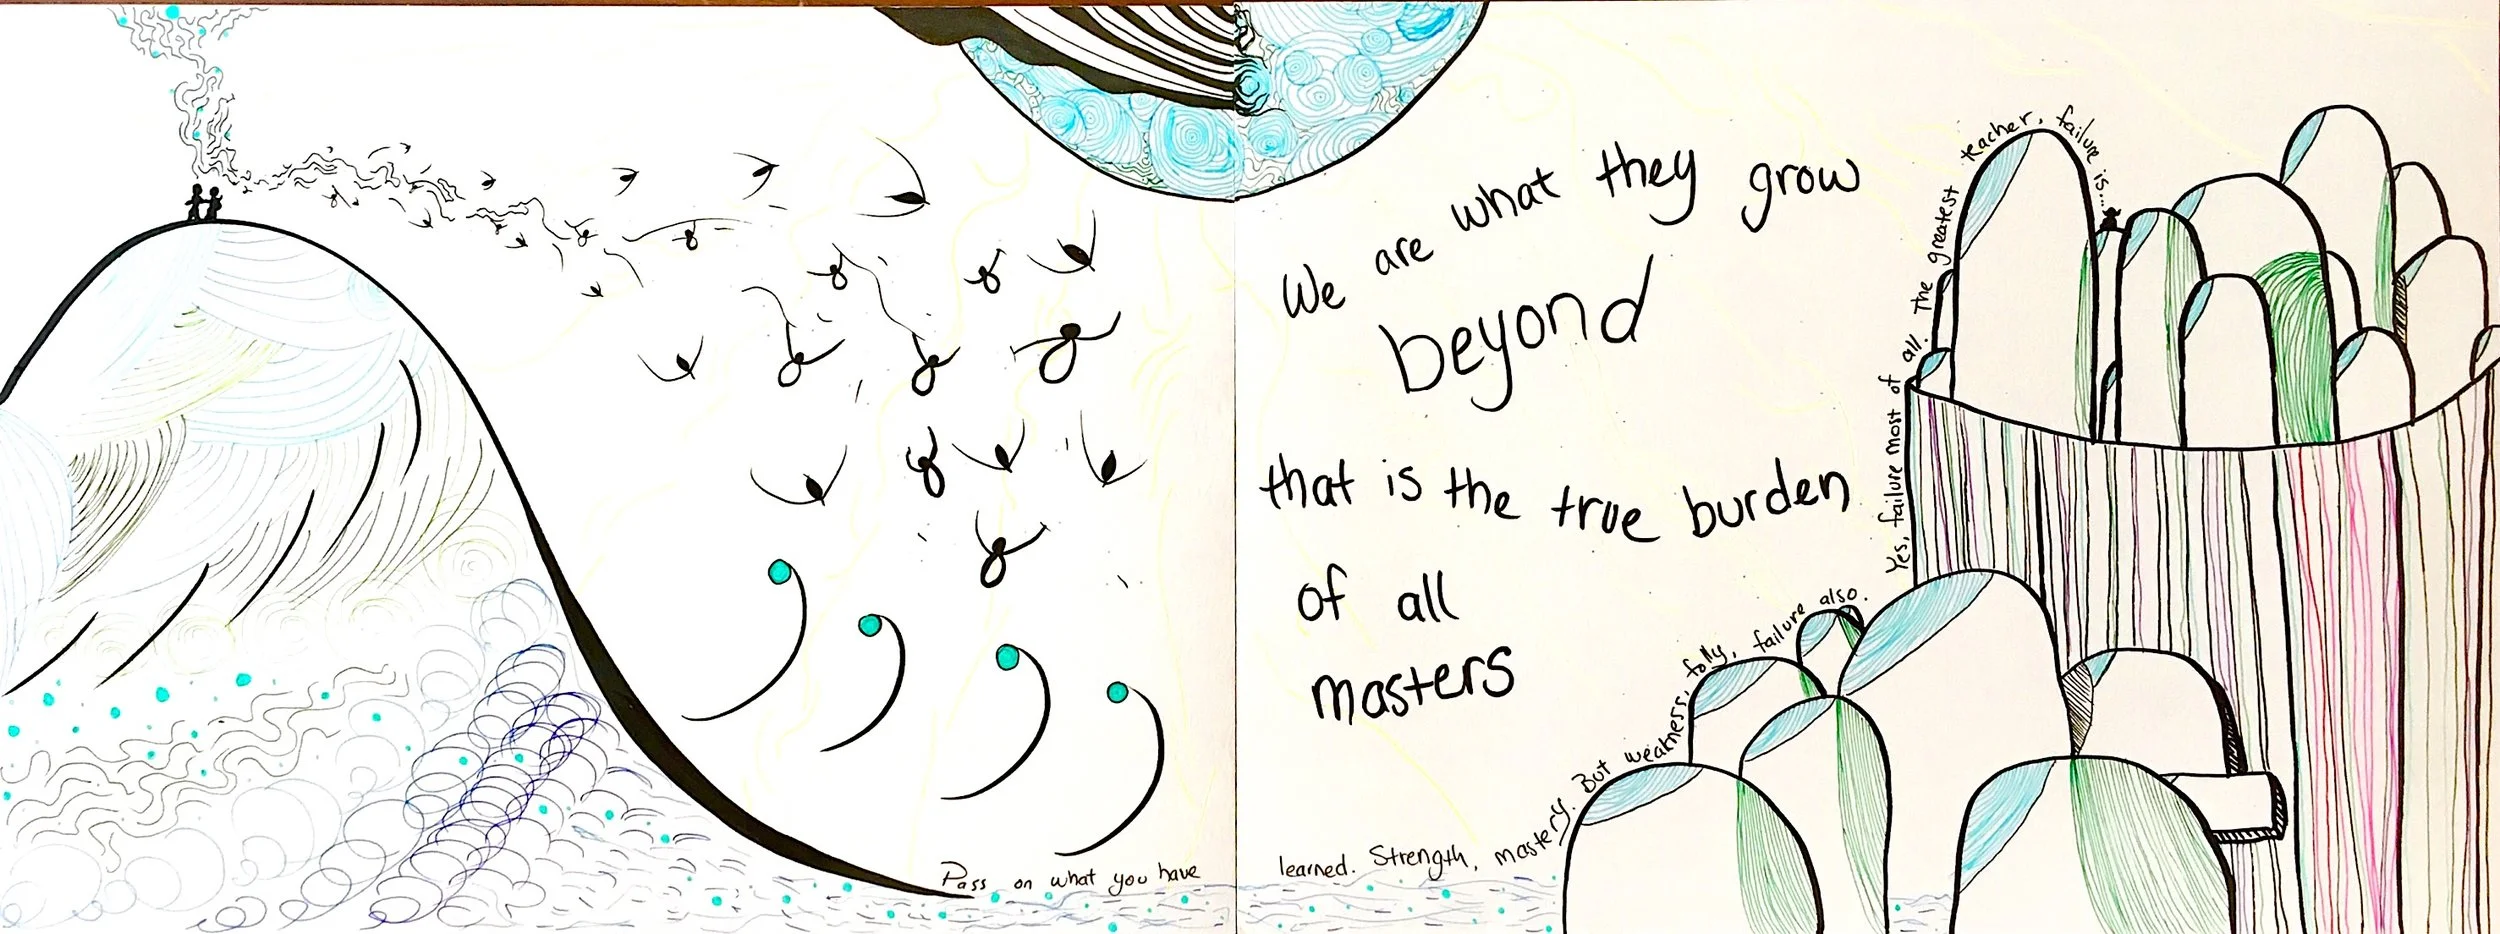 We are what they grow
beyond
that is the true burden
of all
masters
Pass on what you have learned. Strength, mastery. But weakness, folly, failure also.
Yes, failure most of all. The greatest teacher, failure is...